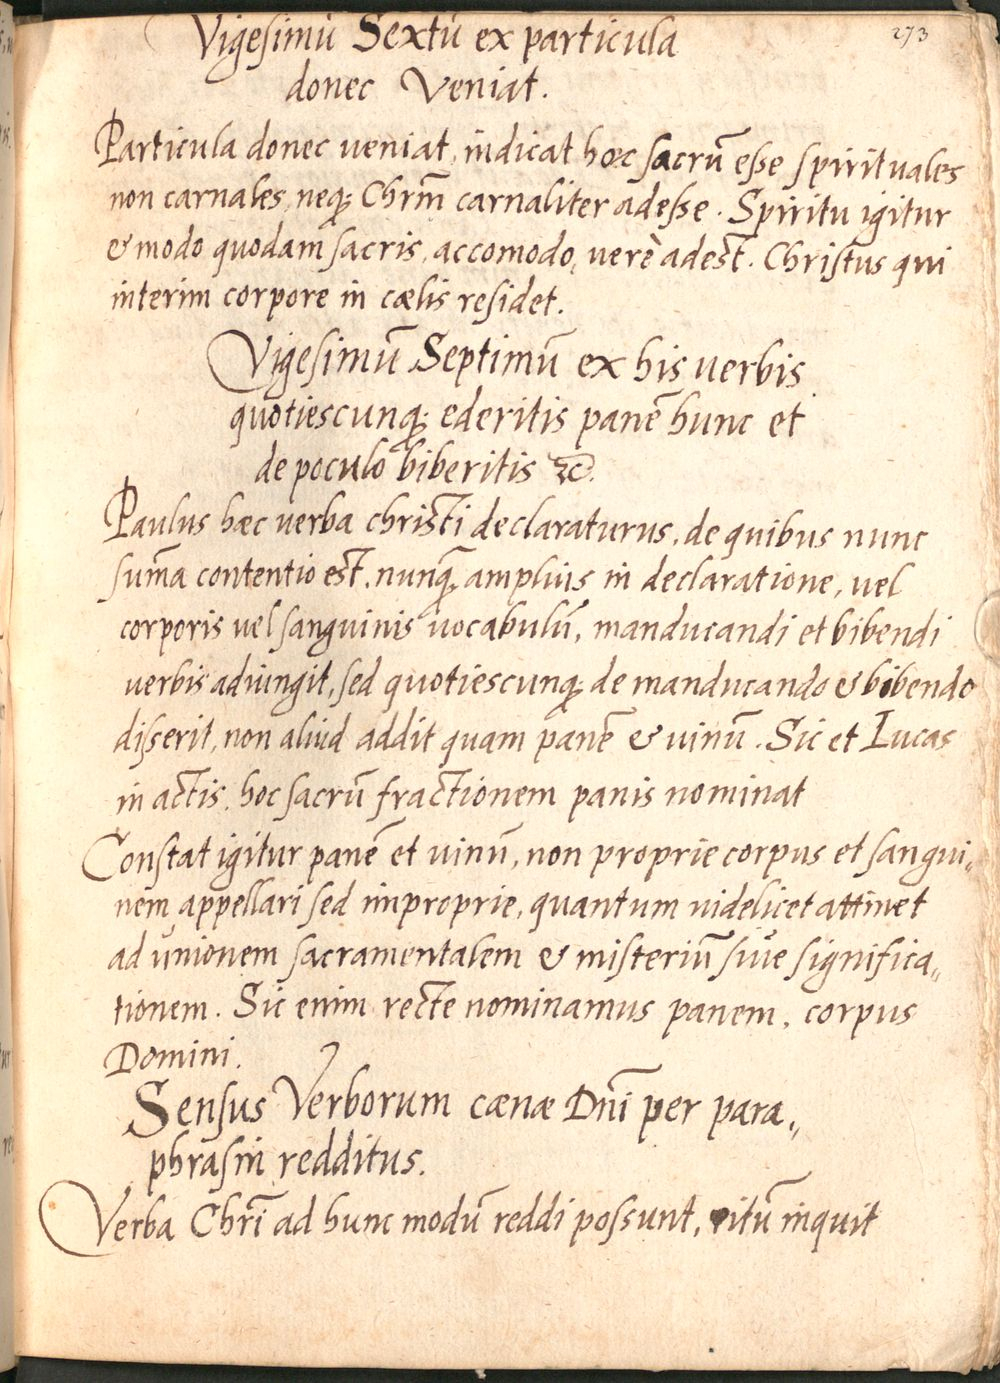 273
Vigesimū Sextū ex particula
donec Veniat.
Particula donec veniat, indicat hoc sacrū esse spirituales
non carnales, neq; Chrm̄ carnaliter adesse. Spiritu igitur
& modo quodam sacris, accomodo, verè adest. Christus qui
interim corpore in cælis residet.
Vigesimū Septimū ex his verbis
quotiescunq; ederitis panē hunc et
de poculo biberitis &c.
Paulus hæc verba christi declaraturus, de quibus nunc
sum̄a contentio est, nunq̄ amplius in declaratione, vel
corporis vel sanguinis vocabulū, manducandi et bibendi
verbis adiungit, sed quotiescunq; de manducando & bibendo
disserit, non aliud addit quam panē & vinū. Sic et Lucas
in actis, hoc sacrū fractionem panis nominat
Constat igitur panē et vinū, non proprie corpus et sangui„
nem appellari sed improprie, quantum videlicet attinet
ad unionem sacramentalem & misteriū siue significa„
tionem. Sic enim recte nominamus panem, corpus
Domini.
Sensus Verborum cænæ Dn̄i per para„
phrasin redditus.
Verba Chr̄i ad hunc modū reddi possunt, ritū inquit